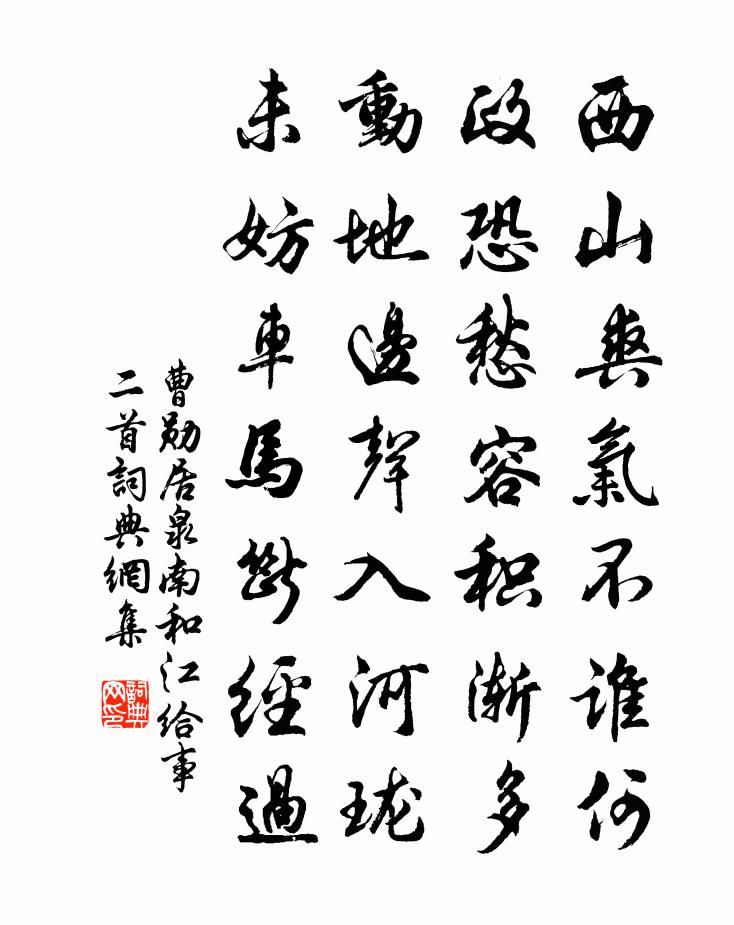 西山爽氣不誰何
政恐愁容积漸多
動地邊聲入河珑
未妨車馬斷經過
曹勛居泉南和江給事
二首詞典網集
詞典
网印